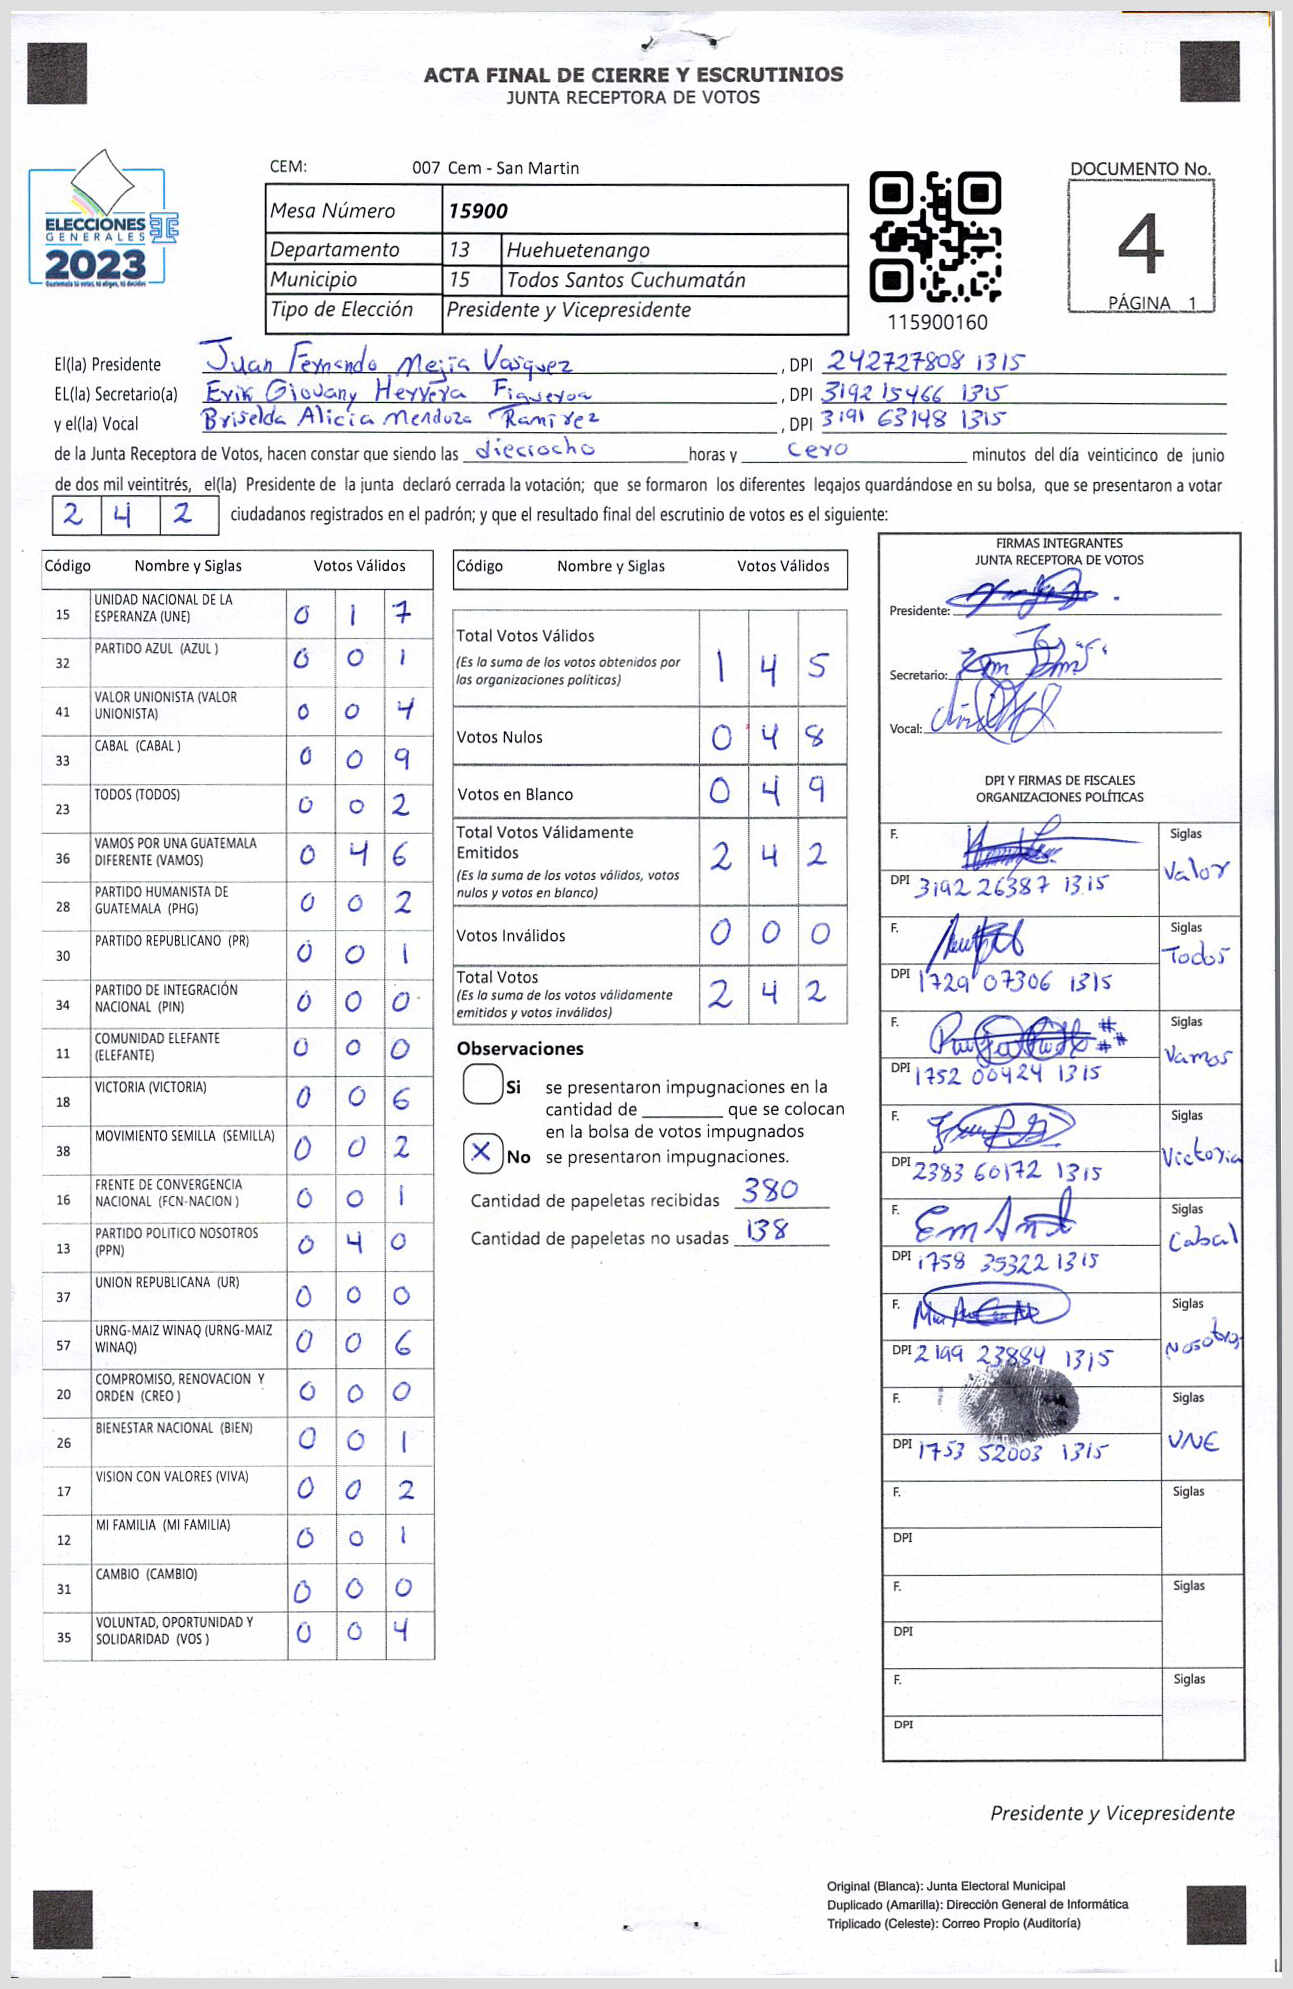 ACTA FINAL DE CIERRE Y ESCRUTINIOS
JUNTA RECEPTORA DE VOTOS
ELECCIONES
GENERALES
2023
Guatemala tú votas, tú eliges, tú decides
CEM: 007 Cem - San Martin
Mesa Número 15900
Departamento 13 Huehuetenango
Municipio 15 Todos Santos Cuchumatán
Tipo de Elección Presidente y Vicepresidente
115900160
DOCUMENTO No.
4
PÁGINA 1
El(la) Presidente Juan Fernando Mejía Vasquez, DPI 242727808 1315
EL(la) Secretario(a) Erik Giovany Herrera Figueroa, DPI 3192 15466 1315
y el(la) Vocal Briselda Alicia Mendoza Ramirez, DPI 3191 63148 1315
de la Junta Receptora de Votos, hacen constar que siendo las dieciocho horas y cero minutos del día veinticinco de junio
de dos mil veintitrés, el(la) Presidente de la junta declaró cerrada la votación; que se formaron los diferentes legajos guardándose en su bolsa, que se presentaron a votar
2 4 2 ciudadanos registrados en el padrón; y que el resultado final del escrutinio de votos es el siguiente:
Código Nombre y Siglas Votos Válidos
15 UNIDAD NACIONAL DE LA ESPERANZA (UNE) 0 1 7
32 PARTIDO AZUL (AZUL ) 0 0 1
41 VALOR UNIONISTA (VALOR UNIONISTA) 0 0 4
33 CABAL (CABAL ) 0 0 9
23 TODOS (TODOS) 0 0 2
36 VAMOS POR UNA GUATEMALA DIFERENTE (VAMOS) 0 4 6
28 PARTIDO HUMANISTA DE GUATEMALA (PHG) 0 0 2
30 PARTIDO REPUBLICANO (PR) 0 0 1
34 PARTIDO DE INTEGRACIÓN NACIONAL (PIN) 0 0 0
11 COMUNIDAD ELEFANTE (ELEFANTE) 0 0 0
18 VICTORIA (VICTORIA) 0 0 6
38 MOVIMIENTO SEMILLA (SEMILLA) 0 0 2
16 FRENTE DE CONVERGENCIA NACIONAL (FCN-NACION ) 0 0 1
13 PARTIDO POLITICO NOSOTROS (PPN) 0 4 0
37 UNION REPUBLICANA (UR) 0 0 0
57 URNG-MAIZ WINAQ (URNG-MAIZ WINAQ) 0 0 6
20 COMPROMISO, RENOVACION Y ORDEN (CREO ) 0 0 0
26 BIENESTAR NACIONAL (BIEN) 0 0 1
17 VISION CON VALORES (VIVA) 0 0 2
12 MI FAMILIA (MI FAMILIA) 0 0 1
31 CAMBIO (CAMBIO) 0 0 0
35 VOLUNTAD, OPORTUNIDAD Y SOLIDARIDAD (VOS ) 0 0 4
Código Nombre y Siglas Votos Válidos
Total Votos Válidos 1 4 5
(Es la suma de los votos obtenidos por
las organizaciones políticas)
Votos Nulos 0 4 8
Votos en Blanco 0 4 9
Total Votos Válidamente
Emitidos 2 4 2
(Es la suma de los votos válidos, votos
nulos y votos en blanco)
Votos Inválidos 0 0 0
Total Votos 2 4 2
(Es la suma de los votos válidamente
emitidos y votos inválidos)
Observaciones
Si se presentaron impugnaciones en la
cantidad de ________ que se colocan
en la bolsa de votos impugnados
X No se presentaron impugnaciones.
Cantidad de papeletas recibidas 380
Cantidad de papeletas no usadas 138
FIRMAS INTEGRANTES
JUNTA RECEPTORA DE VOTOS
Presidente:
Secretario:
Vocal:
DPI Y FIRMAS DE FISCALES
ORGANIZACIONES POLÍTICAS
F. Siglas
DPI 3192 26387 1315 Valor
F. Siglas
DPI 1729 07306 1315 Todos
F. Siglas
DPI 1752 00424 1315 Vamos
F. Siglas
DPI 2383 60172 1315 Victoria
F. Siglas
DPI 1758 35322 1315 Cabal
F. Siglas
DPI 2199 23884 1315 Nosotros
F. Siglas
DPI 1753 52003 1315 UNE
F. Siglas
DPI
F. Siglas
DPI
F. Siglas
DPI
Presidente y Vicepresidente
Original (Blanca): Junta Electoral Municipal
Duplicado (Amarilla): Dirección General de Informática
Triplicado (Celeste): Correo Propio (Auditoría)